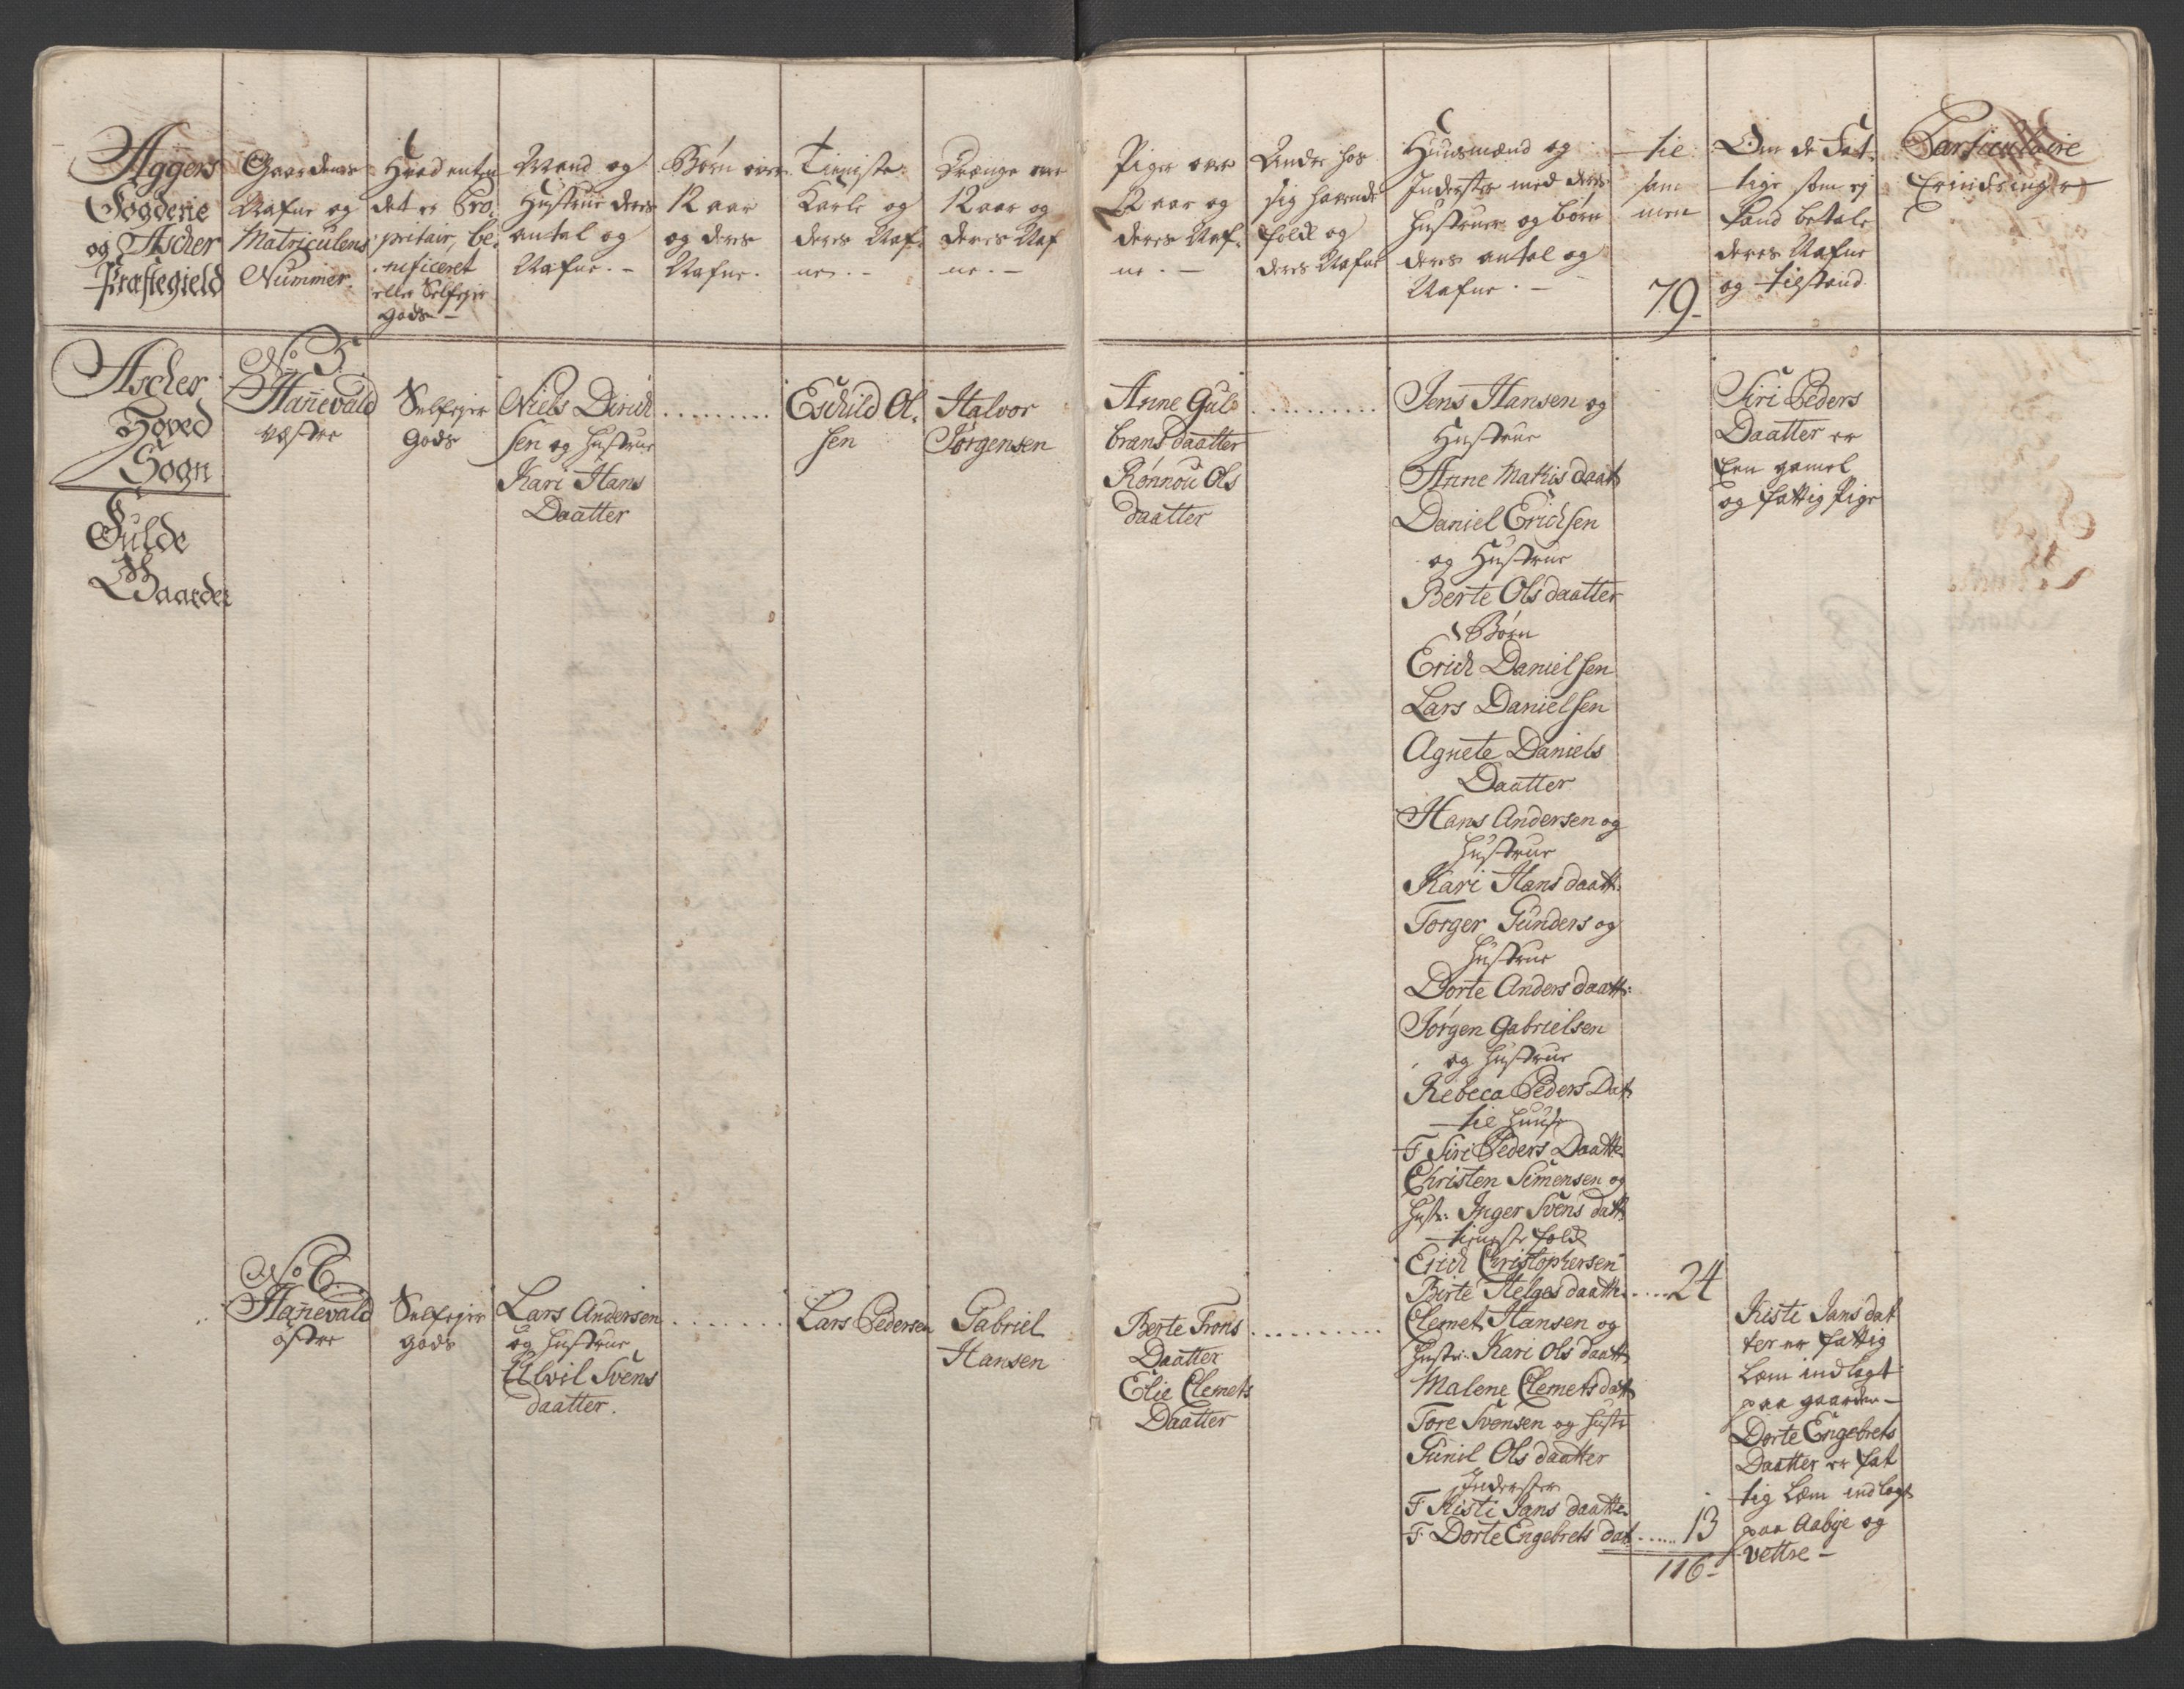 Aggers
Fogderie
og Ascher
Præstegield
Gaardenes
Nafne og
Matriculens
Nummer.
Hvad enten
det er Pro:
pritair, be:
neficeret
eller Selfejer
gods –
Mand og
Hustrue deres
antal og
Nafne. –
Børn over
12 aar
og deres
Nafne.
Tieniste
Karle og
deres Naf:
ne. –
Drenge over
12 aar og
deres Naf
ne. –
Piger over
12 aar og
deres Naf:
ne. –
Andre hos
sig havende
folck og
deres Nafne
Huusmænd og
Inderster med deres
Hustruer og børn
deres antal og
Nafne. –
til
sam
men
79–
Om de Fat
tige som ej
kand betale
deres Nafne
og tilstand
Particulaire
Erindringer
Ascher
Hoved
Sogn
Fulde
Gaarder
No. 5.
Hañevald
Væstre
Selfejer
Gods
Niels Dirich
sen og Hustrue
Kari Hans
Daatter
Eschild Ol:
sen
Halvor
Jørgensen
Anne Gul
brans daatter
Rønnou Ols
daatter
Jens Hansen og
Hustrue
Anne Mathis daat
Daniel Erichsen
og Hustrue
Berte Olsdaatter
Børn
Erich Danielsen
Lars Danielsen
Agnete Daniels
Daatter
Hans Andersen og
Hustrue
Kari Hansdaatt:
Torger Gunders og
Hustrue
Dorte Anders daatt:
Jørgen Gabrielsen
og Hustrue
Rebeca Peders Dat
til huuse
F Siri Peders Daatte
Christen Simensen og
Hustr: Inger Svens datt
tieneste folck
Erich Christophersen
Birte Helges daatt: ..... 24
Siri Peders
Daatter er
Een gamel
og fattig Pige
No 6.
Hañevald
østre
Selfejer
gods
Lars Andersen
og Hustrue
Elvil Svens
daatter.
Lars Pedersen
Gabriel
Hansen
Berte Trons
Daatter
Elie Clemets
Daatter
Clemet Hansen og
Hustr: Kari Ols daatt
Malene Clemets datt
Tore Svensen og Hustr
Gunil Ols daatter
Inderster
F Kisti Jans daatte
F. Dorte Engebrets dat ..... 13
116–
Kisti Jans dat
ter er fattig
Lem indlagt
paa gaarden –
Dorte Engebrets
Daatter er fat
tig Lem indlagt
paa Aabye og
Vettre –